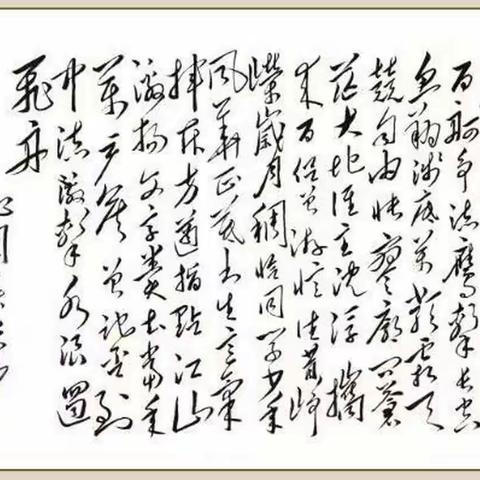 百舸争流鷹擊长空
鱼翔浅底萬類霜天
競自由怅寥廓问蒼
茫大地谁主沈浮攜
来百侣曾游忆往昔峥
嶸歲月稠恰同学少年
风華正茂书生意氣
挥斥方遒指點江山
激扬文字糞土当年
萬户侯曾记否到
中流激擊水浪遏
飛舟